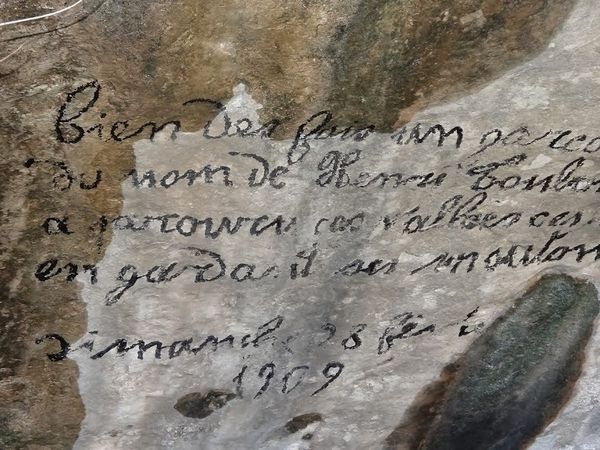 bien des fois un garco
du nom de Henri
a parcouru ces vallées
en gardant ses mouton
dimanche 28
1909